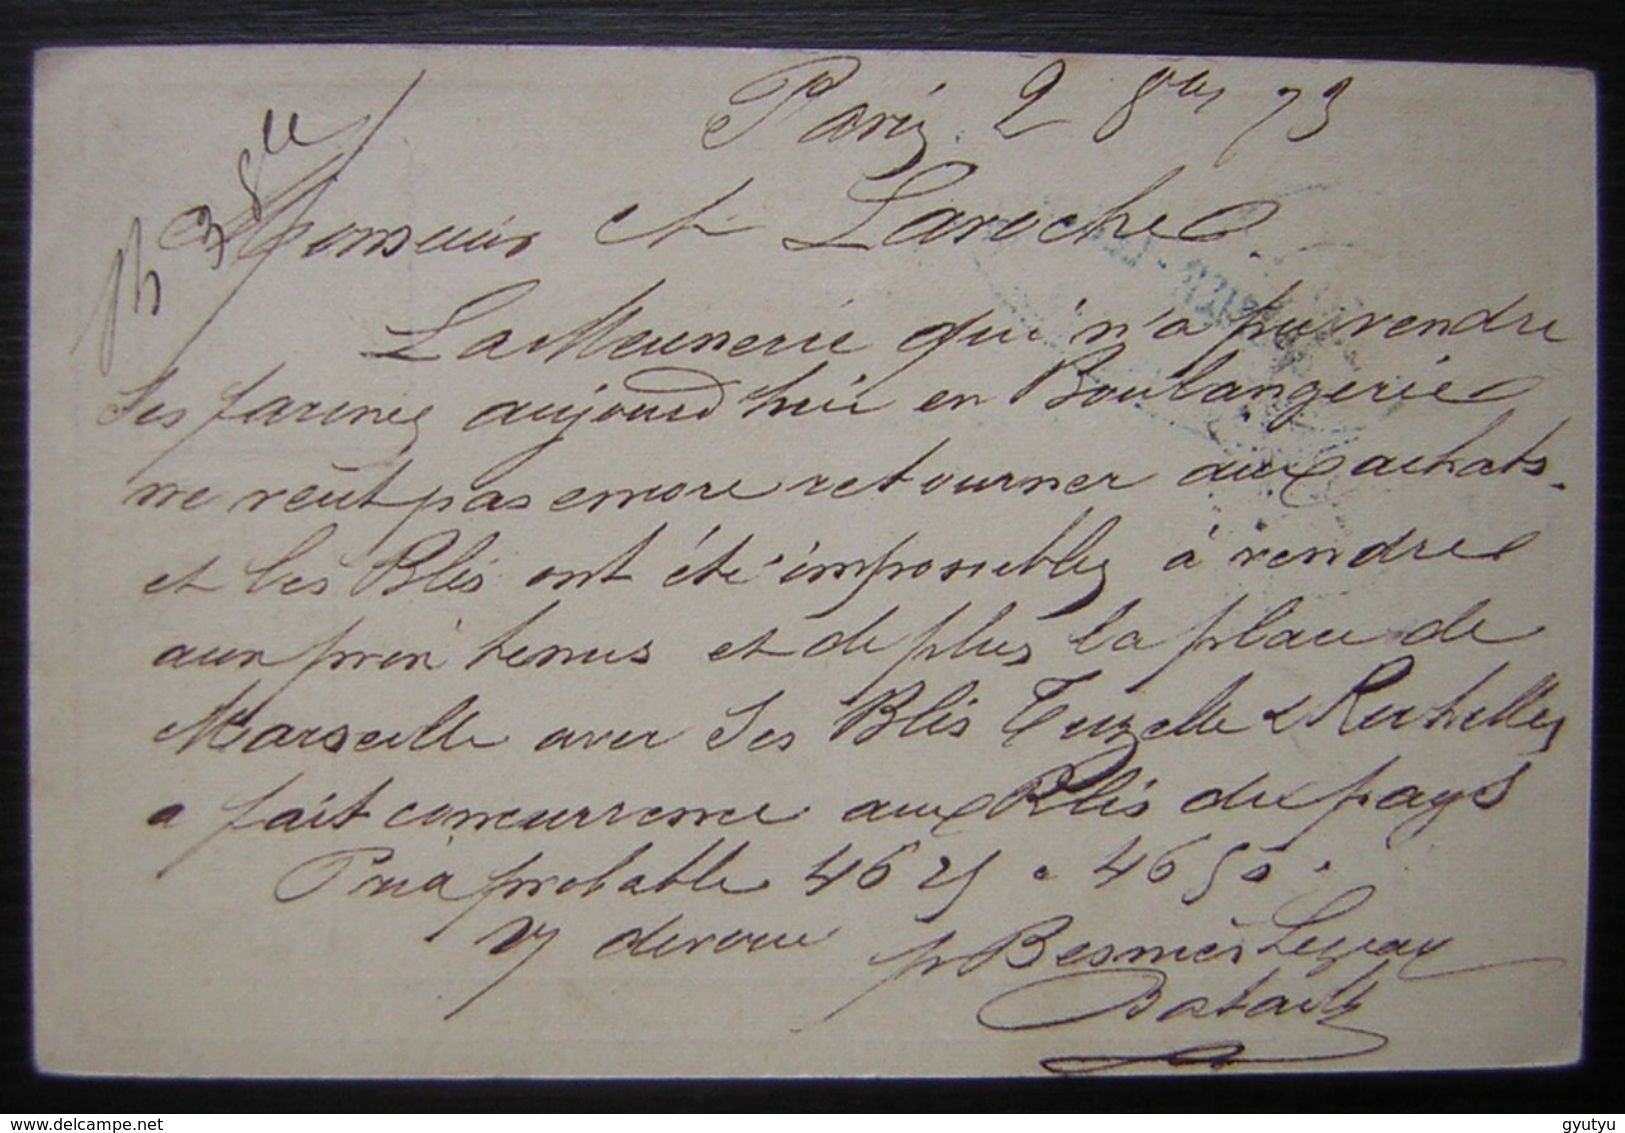 Paris 2 8bre 73
3 8bre
Monsieur et Laroche
La Meunerie qui n'a pu vendre
ses farines aujourd'hui en Boulangerie
ne veut pas encore retourner aux achats.
et les Blés ont été impossibles à vendre
aux prix tenus et de plus la place de
Marseille avec ses Blés Tuzelle & Richelles
a fait concurrence aux Blés du pays
Prix probable 46 25 a 46 50.
devoué p Besnier Lequay
Bataille
delcampe.net
gyutyu